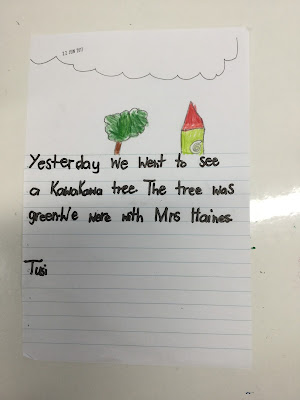 Yesterday we went to see
a Kawakawa tree. The tree was
green.We were with Mrs Haines.
Tusi